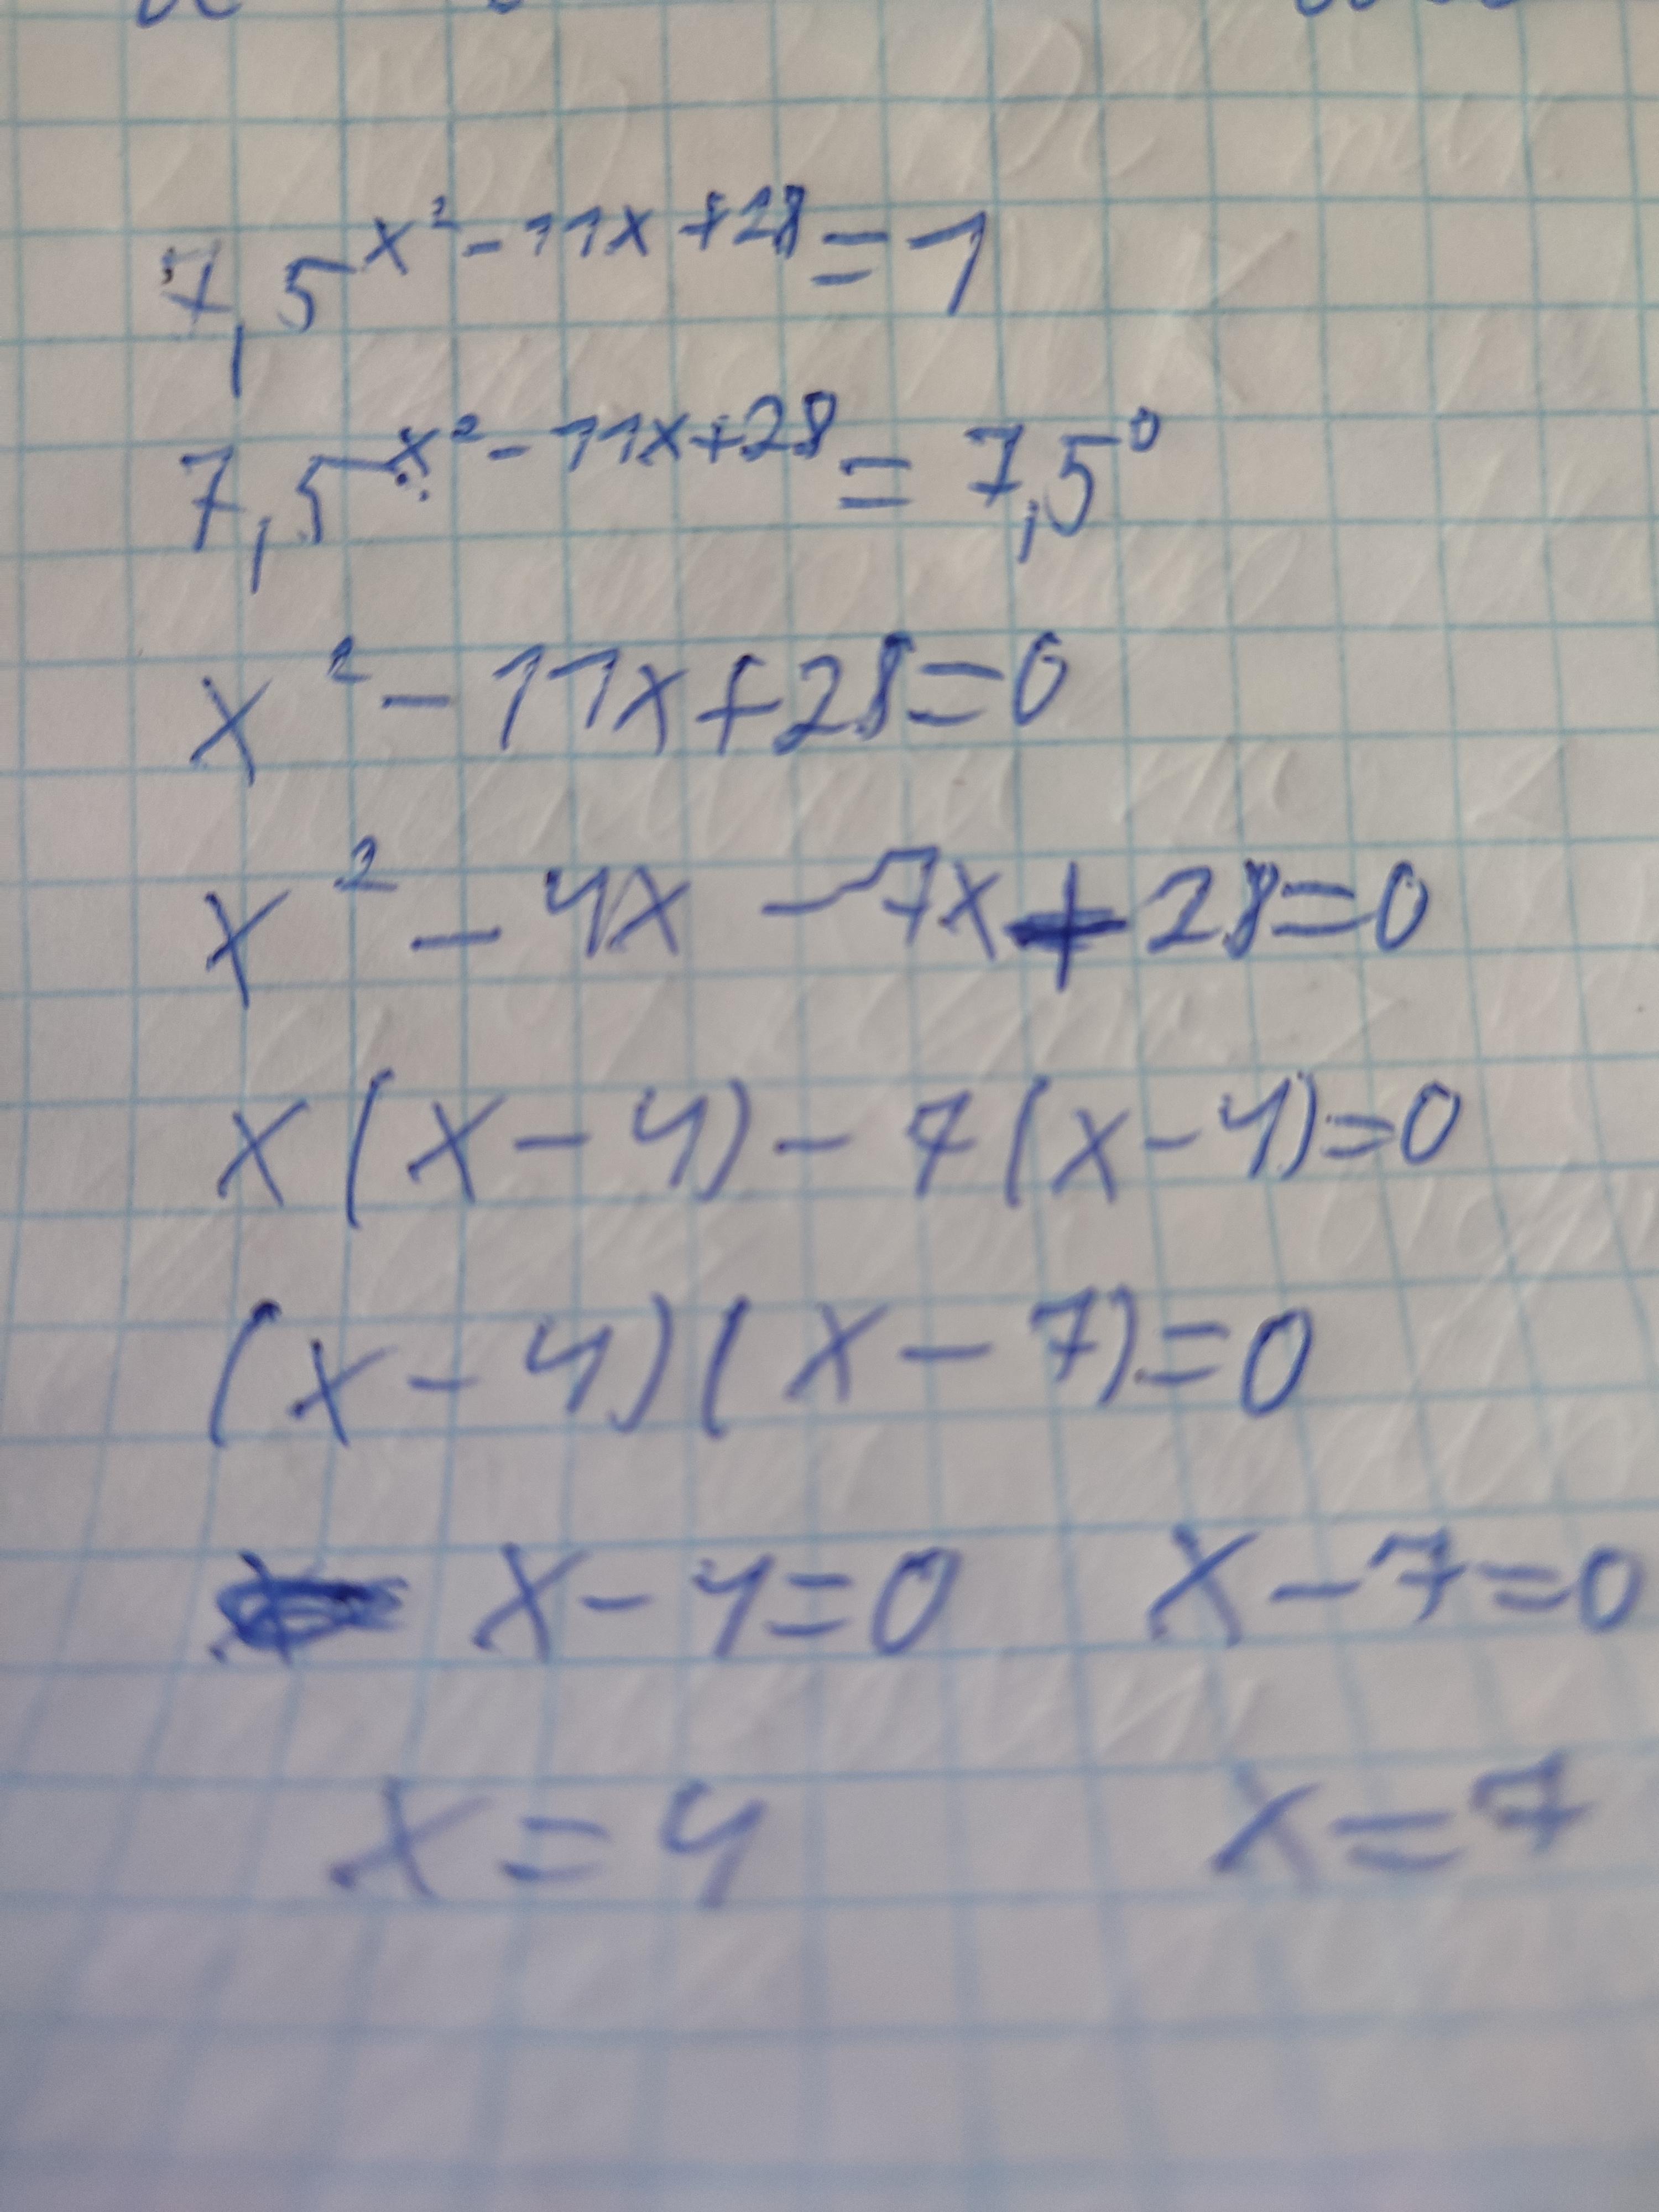 7,5^{x² - 11x + 28} = 1
7,5^{x² - 11x + 28} = 7,5⁰
x² - 11x + 28 = 0
x² - 4x - 7x + 28 = 0
x(x - 4) - 7(x - 4) = 0
(x - 4)(x - 7) = 0
x - 4 = 0 x - 7 = 0
x = 4 x = 7